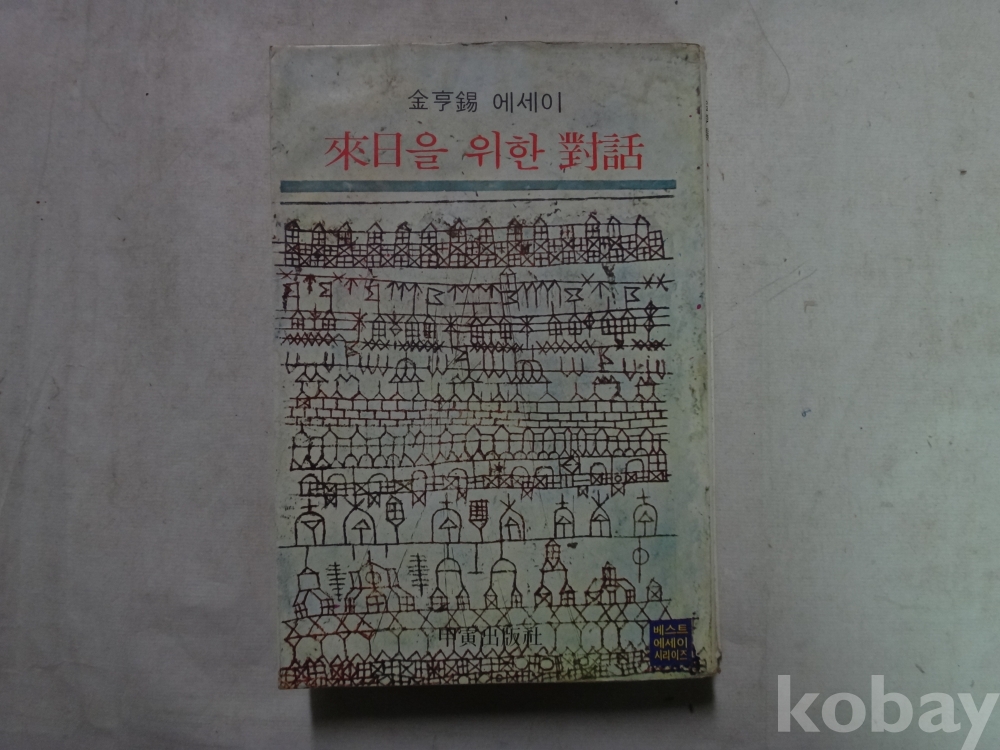 金亨錫 에세이
來日을 위한 對話
甲寅出版社
베스트
에세이
시리이즈
kobay